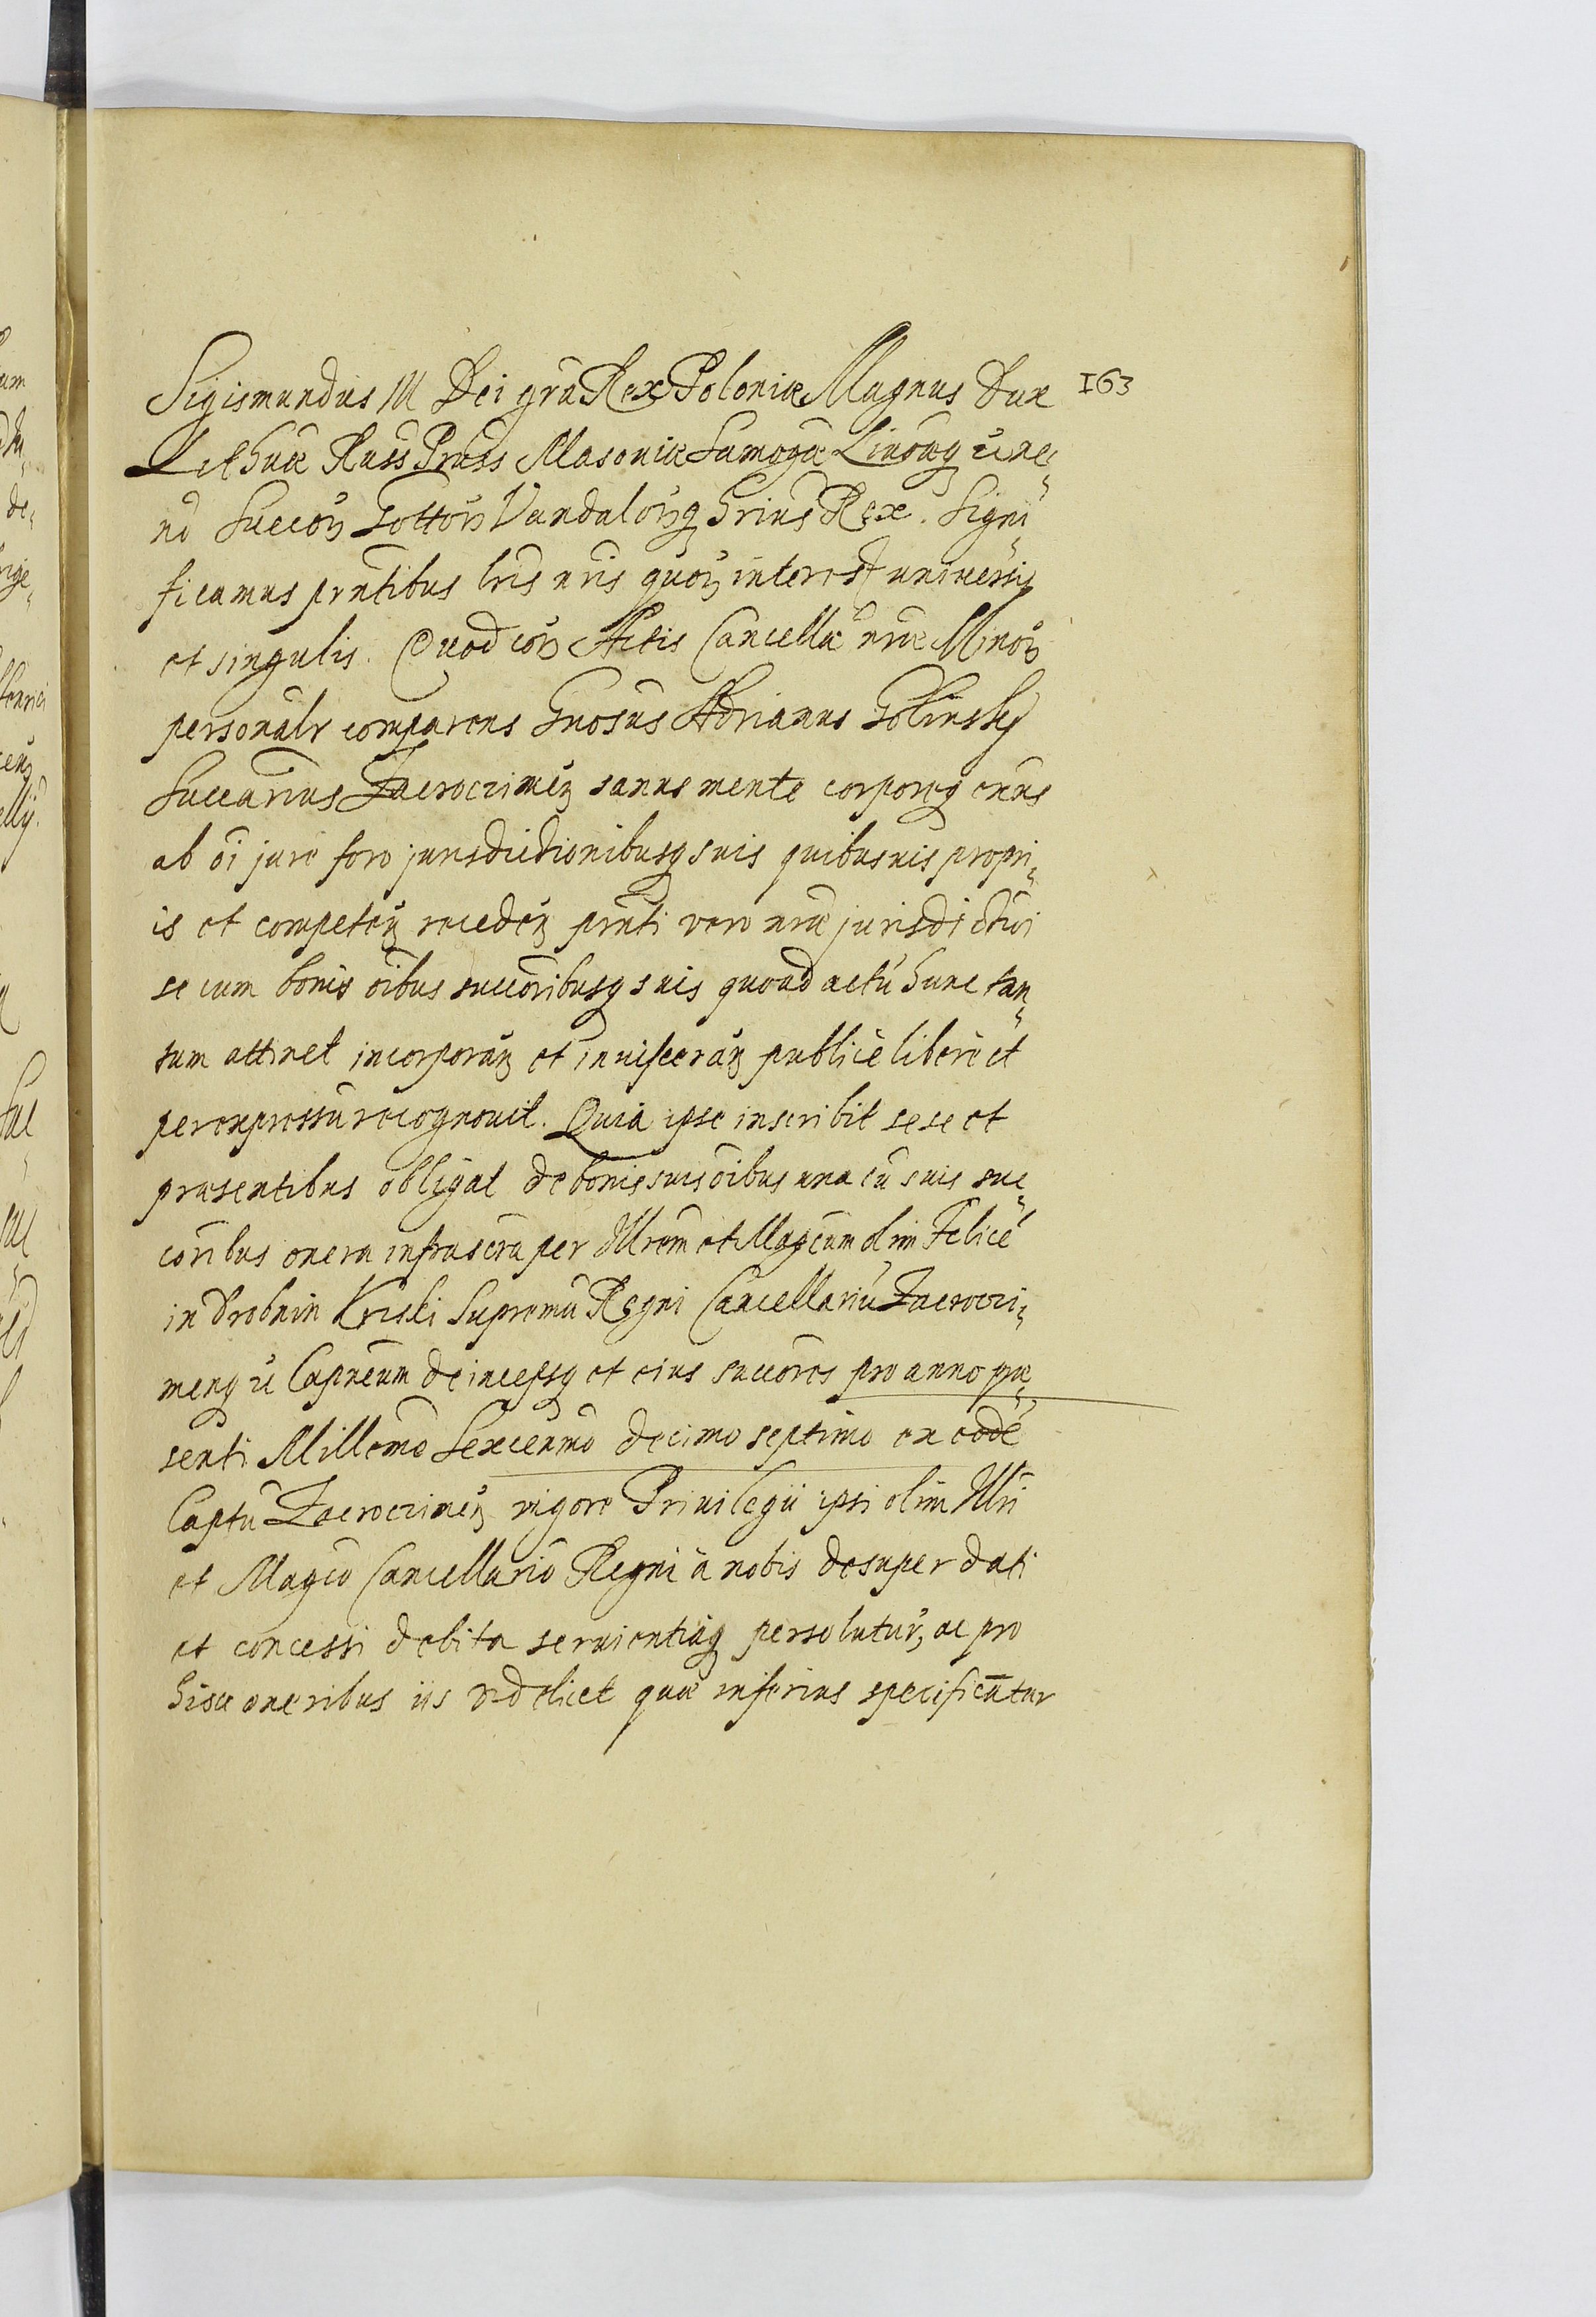 Sigismundus III Dei gra Rex Poloniæ Magnus Dux
163
Lithuæ Russ Pruss Masouiæ Samogæ Liuoæq nec
no Suecor Gottor Vandalorq hrius Rex. Signi„
ficamus prntibus lris nris quor interest uniuersis
et singulis. Quod cor Actis Cancellæ nræ Minor
personalr comparens Gnosus Adrianus Golinsky
Succarius Zacroczimen sanus mente corporeq exns
ab oi jure foro jurisdictionibusq suis quibusuis propri„
is et competen receden prnti vero nræ jurisdictioi
se cum bonis oibus succoribusq suis quoad actu hunc tan„
tum attinet incorporan et inuisceran publice libere et
per expressu recognouit. Quia ipse inscribit sese et
præsentibus obligat de bonis suis oibus una cu suis suc„
coribus onera infrascra per Illrem et Magcum olim Felice
in Drobnin Kriski Supremu Regni Cancellariu Zacroczi„
menq Capneum deincepsq et eius succores pro anno præ„
senti Millemo Sexcenmo decimo septimo ex eode
Captu Zacroczimen vigore Priuilegii ipsi olim Illri
et Magco Cancellario Regni à nobis desuper dati
et concessi debita seruientiaq persolutur, ac pro
hisce oneribus iis videlicet quæ inferius specificatur